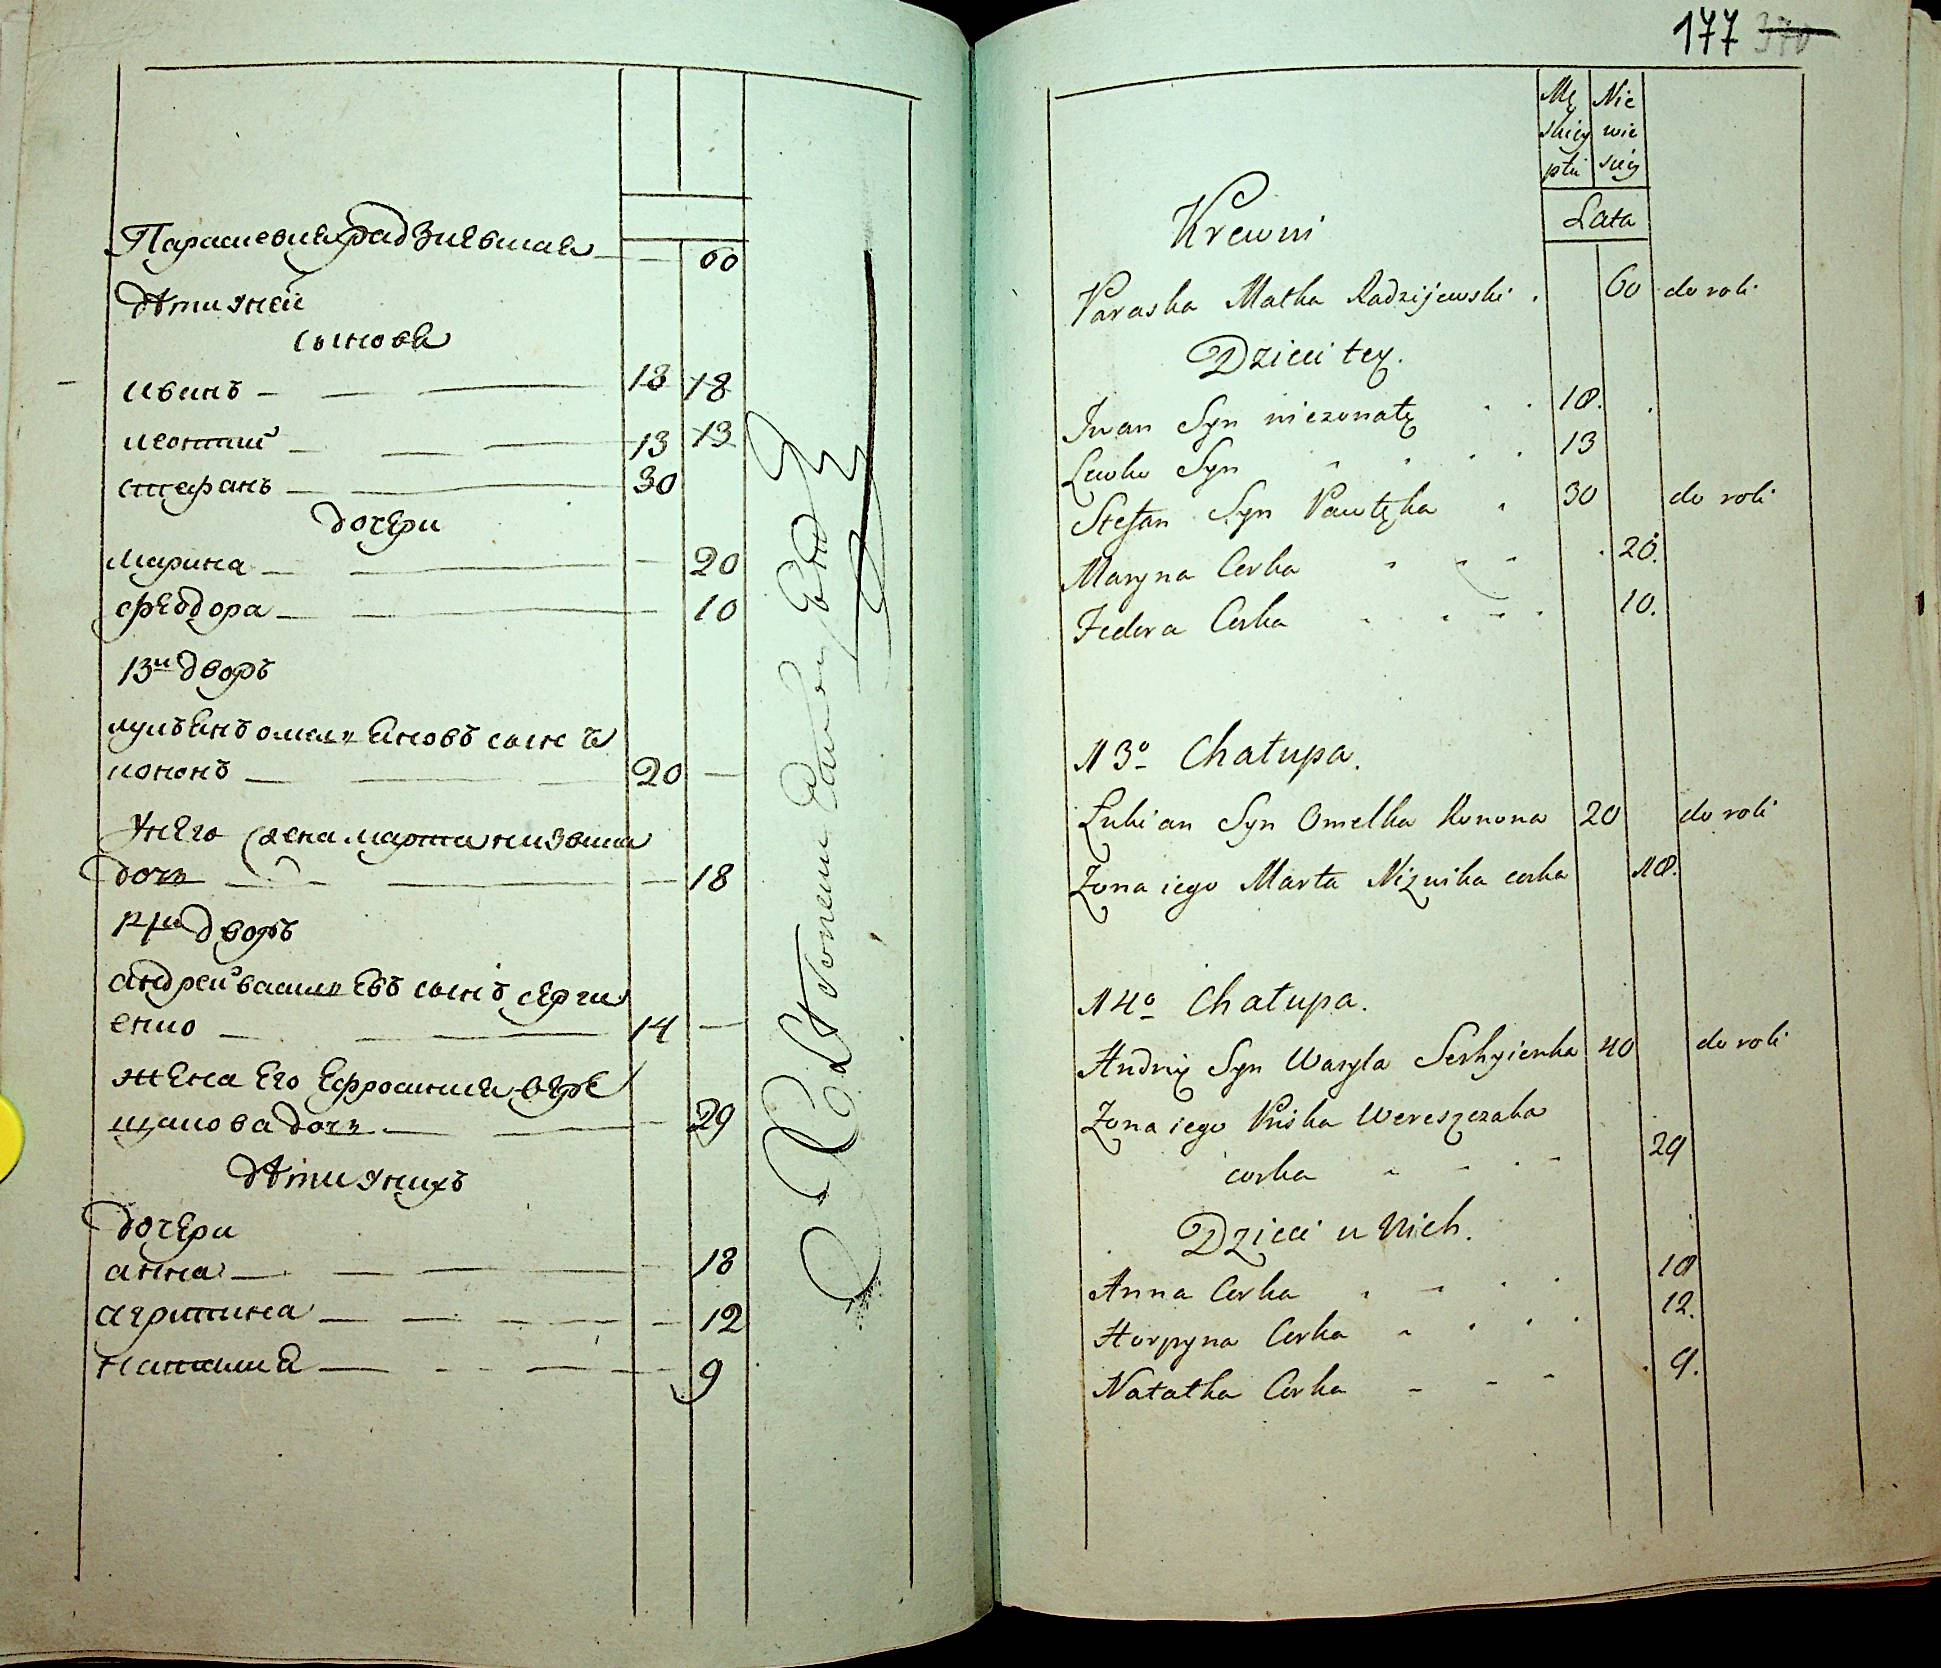 Параскевия Радзиевская 60
Дѣти у ней
Сынове
Иванъ 18 18
Леонтий 13 13
Стефанъ 30
дочери
Марина 20
Феодора 10
13й дворъ
Лукъянъ омельяновъ сынъ
кононъ 20
У него жена марта низвика
дочь 18
14й дворъ
Андрей васильевъ сынъ серги
енко 14
жена Его Ефросиния вере
щакова дочь 29
дѣти у нихъ
дочери
анна 18
агрипина 12
Наталия 9
177 370
Mę Nie
skiey wie
płci sciey
Lata
Krewni
Paraska Matka Radzijewski 60 do roli
Dzieci tey.
Iwan Syn niezonaty 18.
Lewko Syn 13
Stefan Syn Pawtęka 30 do roli
Maryna Corka 20.
Fedora Corka 10.
13o Chałupa.
Łukian Syn Omelka Konona 20 do roli
Zona iego Marta Niznika corka 18.
14o Chałupa.
Andrij Syn Wasyla Serhyienka 40 do roli
Zona iego Priska Wereszczaka
corka 29
Dzieci u Nich.
Anna Corka 18
Horpyna Corka 12.
Natałka Corka 9.